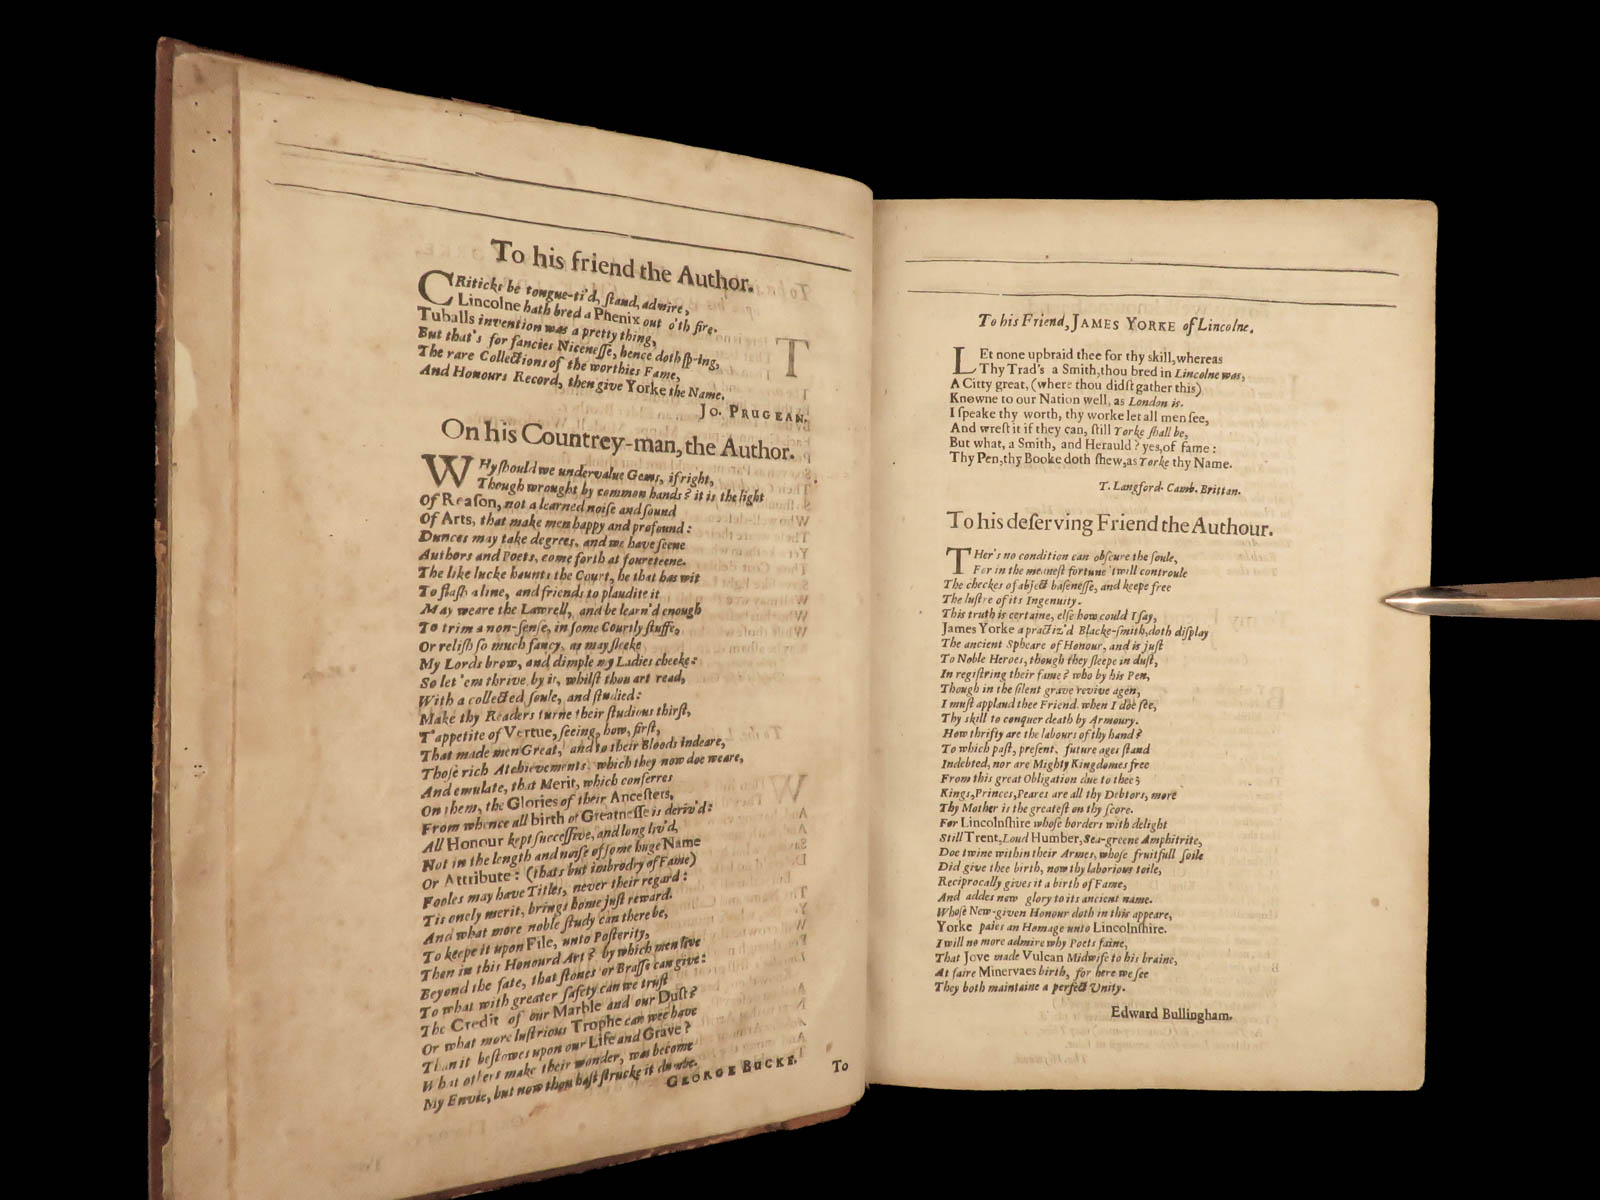 To his friend the Author.
CRiticks be tongue-ti'd, ſtand, admire,
Lincolne hath bred a Phenix out o'th fire.
Tuballs invention was a pretty thing,
But that's for fancies Niceneſſe, hence doth ſpring,
The rare Collections of the worthies Fame,
And Honours Record, then give Yorke the Name.
Jo. PRUGEAN.
On his Countrey-man, the Author.
WHy ſhould we undervalue Gems, if right,
Though wrought by common hands? it is the light
Of Reaſon, not a learned noiſe and ſound
Of Arts, that make men happy and profound:
Dunces may take degrees, and we have ſeene
Authors and Poets, come forth at foureteene.
The like lucke haunts the Court, he that has wit
To flaſh a line, and friends to plaudite it
May weare the Lawrell, and be learn'd enough
To trim a non-ſenſe, in ſome Courtly ſtuffe,
Or reliſh ſo much fancy, as may ſleeke
My Lords brow, and dimple my Ladies cheeke:
So let 'em thrive by it, whilſt thou art read,
With a collected ſoule, and ſtudied:
Make thy Readers turne their ſtudious thirſt,
T'appetite of Vertue, ſeeing, how, firſt,
That made men Great, and to their Bloods indeare,
Thoſe rich Atchievements, which they now doe weare,
And emulate, that Merit, which conferres
On them, the Glories of their Anceſters,
From whence all birth of Greatneſſe is deriv'd:
All Honour kept ſucceſſive, and long liv'd,
Not in the length and noiſe of ſome huge Name
Or Attribute: (thats but imbrodry of Fame)
Fooles may have Titles, never their regard:
Tis onely merit, brings home juſt reward.
And what more noble ſtudy can there be,
To keepe it upon File, unto Poſterity,
Then in this Honourd Art? by which men live
Beyond the fate, that ſtones or Braſſe can give:
To what with greater ſafety can we truſt
The Credit of our Marble and our Duſt?
Or what more luſtrious Trophe can wee have
Than it beſtowes upon our Life and Grave?
What others make their wonder, was become
My Envie, but now thou haſt ſtrucke it dumbe.
GEORGE BUCKE.
To
To his Friend, JAMES YORKE of Lincolne.
LEt none upbraid thee for thy skill, whereas
Thy Trad's a Smith, thou bred in Lincolne was,
A Citty great, (where thou didſt gather this)
Knowne to our Nation well, as London is.
I ſpeake thy worth, thy worke let all men ſee,
And wreſt it if they can, ſtill Yorke ſhall be,
But what, a Smith, and Herauld? yes, of fame:
Thy Pen, thy Booke doth ſhew, as Yorke thy Name.
T. Langford. Camb. Brittan.
To his deſerving Friend the Authour.
THer's no condition can obſcure the ſoule,
For in the meaneſt fortune 'twill controule
The checkes of abject baſeneſſe, and keepe free
The luſtre of its Ingenuity.
This truth is certaine, elſe how could I ſay,
James Yorke a practiz'd Blacke-ſmith, doth diſplay
The ancient Spheare of Honour, and is juſt
To Noble Heroes, though they ſleepe in duſt,
In regiſtring their fame? who by his Pen,
Though in the ſilent grave revive agen,
I muſt applaud thee Friend. when I doe ſee,
Thy skill to conquer death by Armoury.
How thrifty are the labours of thy hand?
To which paſt, preſent, future ages ſtand
Indebted, nor are Mighty Kingdomes free
From this great Obligation due to thee;
Kings, Princes, Peares are all thy Debtors, more
Thy Mother is the greateſt on thy ſcore.
For Lincolnſhire whoſe borders with delight
Still Trent, Loud Humber, Sea-greene Amphitrite,
Doe twine within their Armes, whoſe fruitfull ſoile
Did give thee birth, now thy laborious toile,
Reciprocally gives it a birth of Fame,
And addes new glory to its ancient name.
Whoſe New-given Honour doth in this appeare,
Yorke paies an Homage unto Lincolnſhire.
I will no more admire why Poets faine,
That Jove made Vulcan Midwife to his braine,
At faire Minervaes birth, for here we ſee
They both maintaine a perfect Unity.
Edward Bullingham.